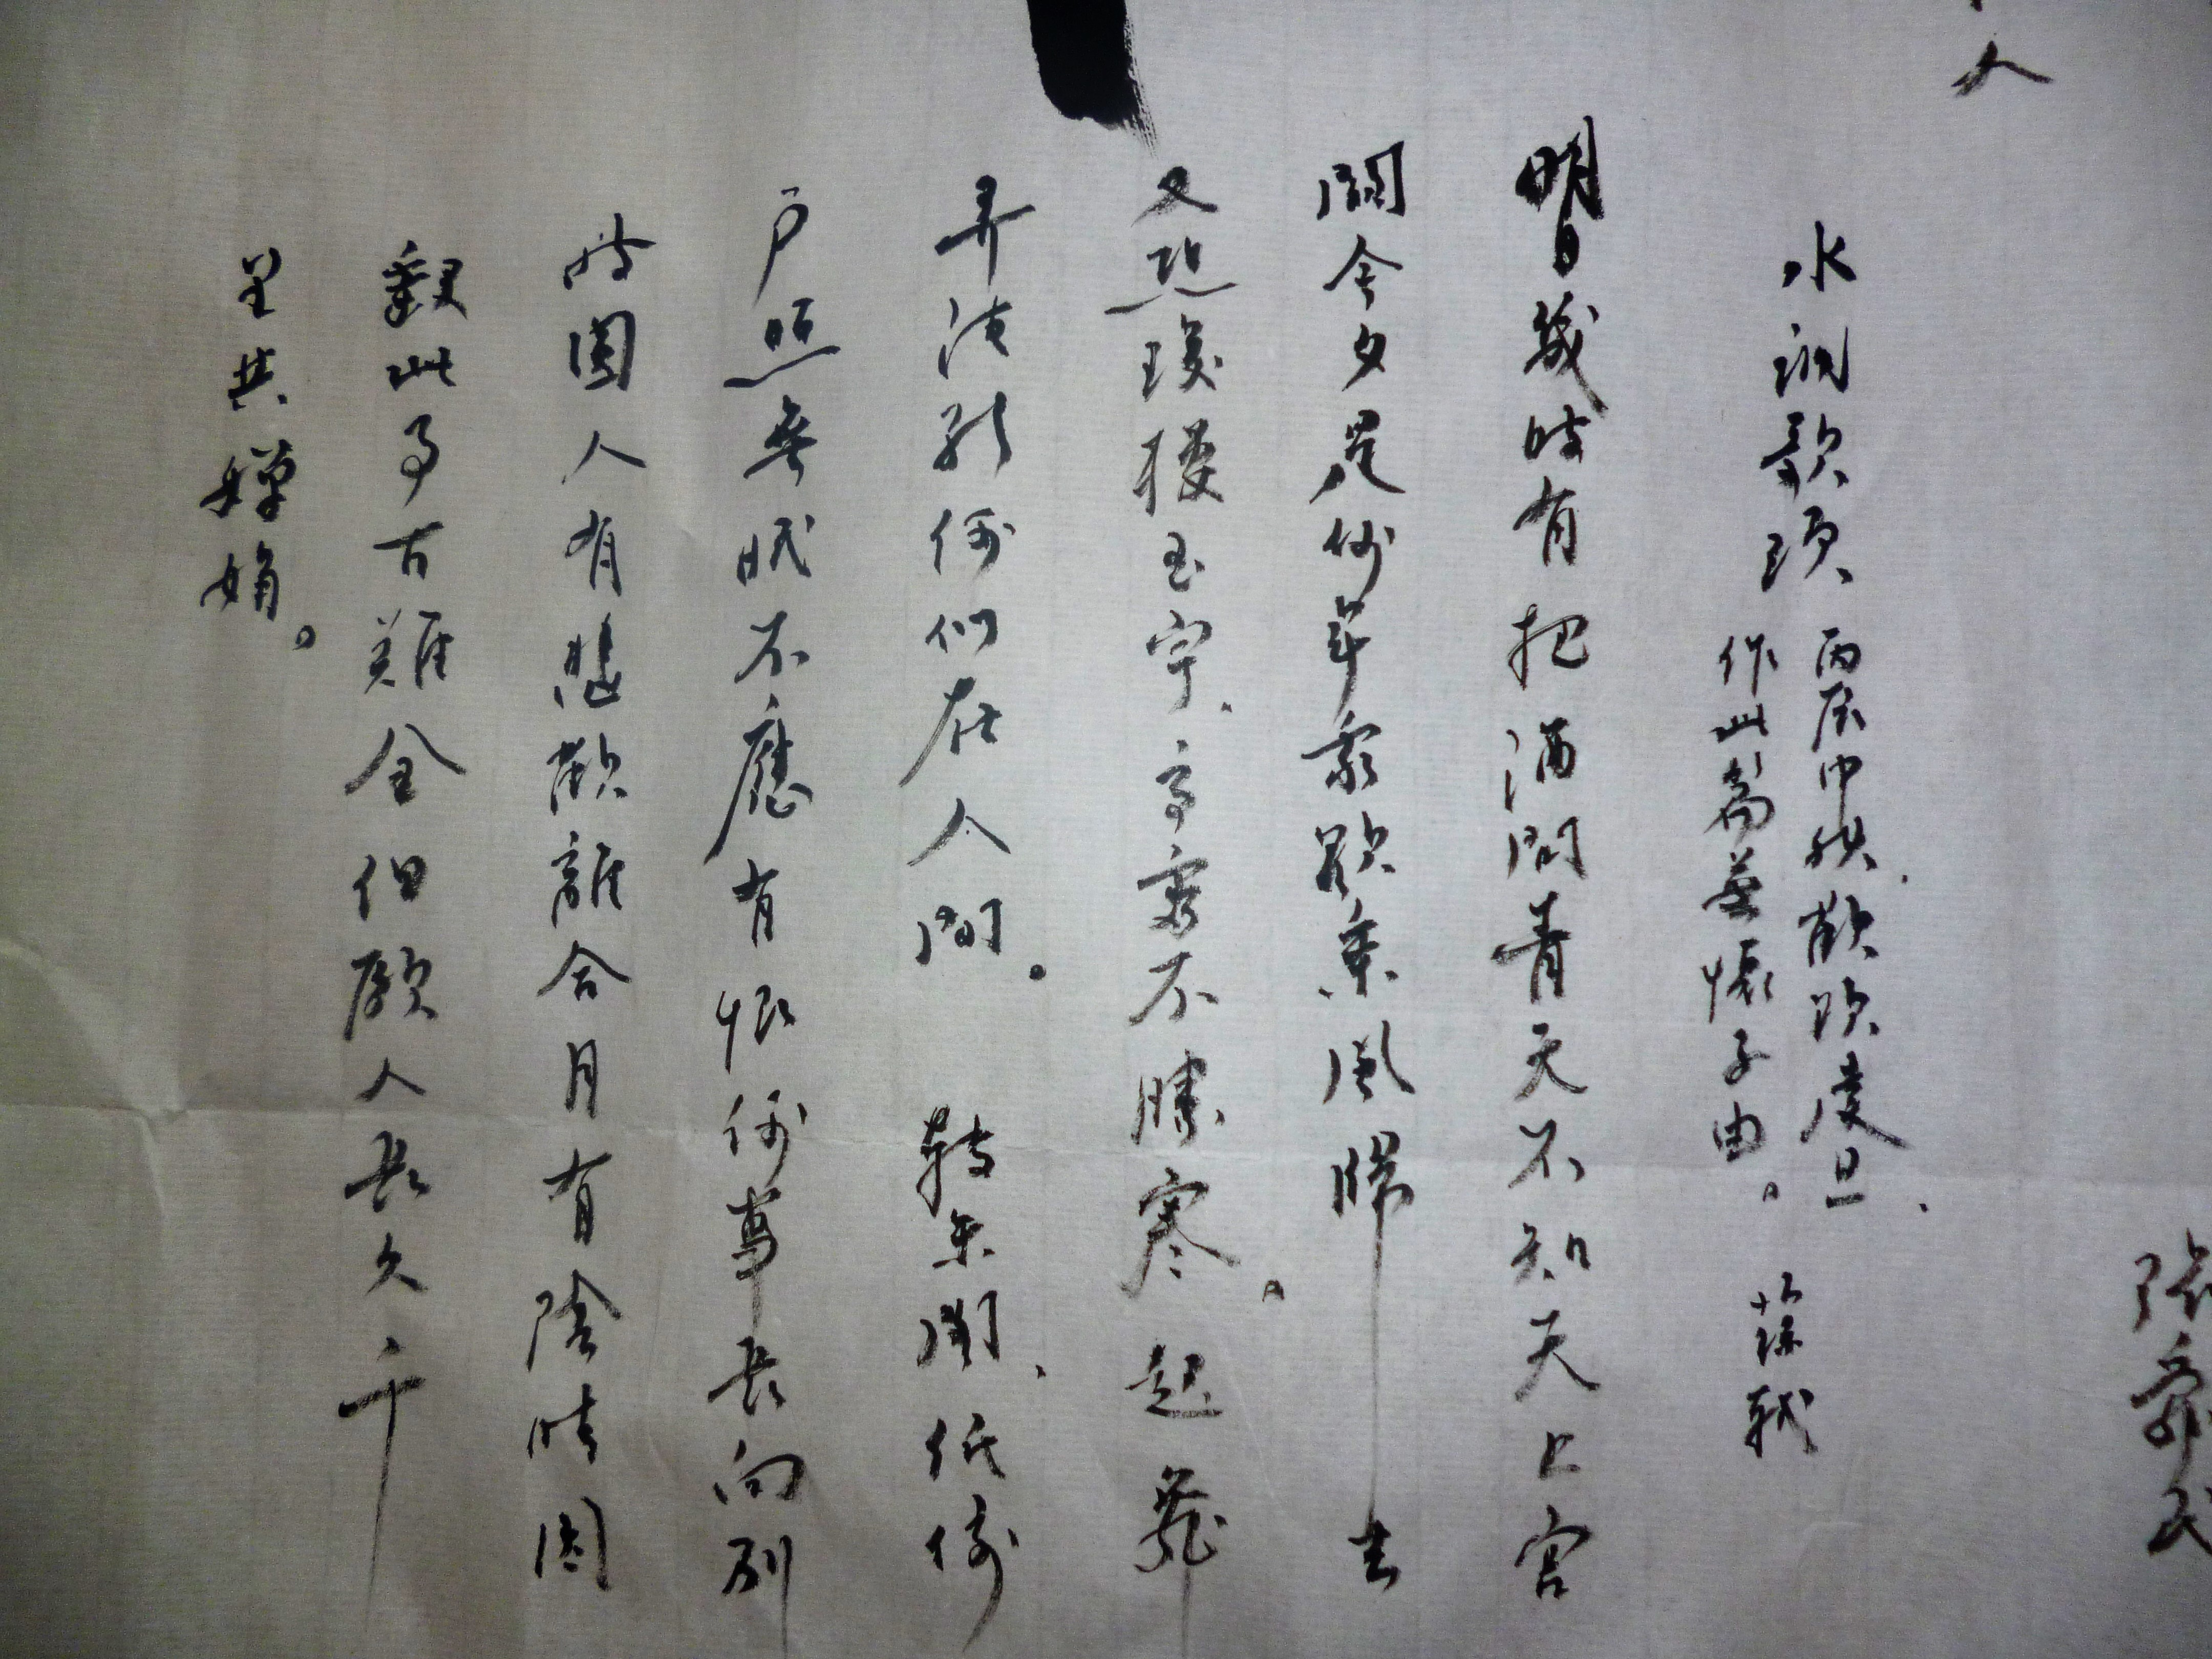 張舜民
人
水調歌頭 丙辰中秋、歡飲達旦、
作此篇兼懷子由。 蘇軾
明月幾時有把酒問青天不知天上宮
闕今夕是何年我欲乘風歸去
又恐瓊樓玉宇、高處不勝寒。起舞
弄清影何似在人間。 轉朱閣、低綺
戶照無眠不應有恨何事長向別
時圓人有悲歡離合月有陰晴圓
缺此事古難全但願人長久千
里共嬋娟。